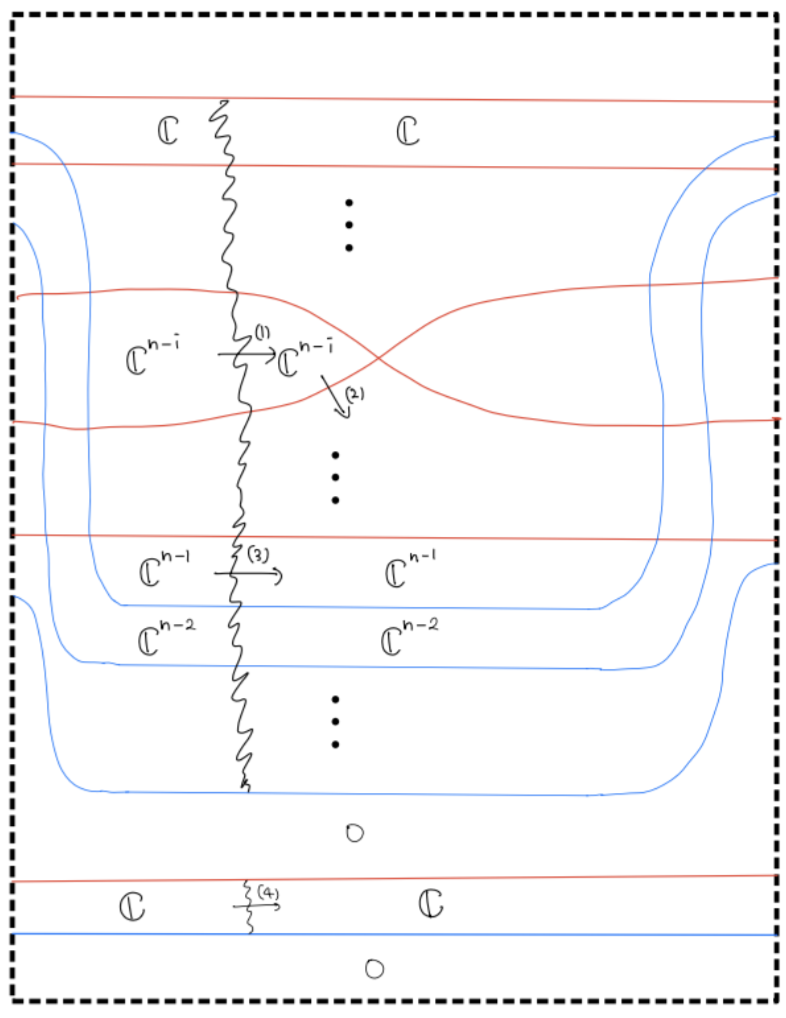 ℂ ℂ
ℂⁿ⁻ⁱ (1) ℂⁿ⁻ⁱ
(2)
ℂⁿ⁻¹ (3) ℂⁿ⁻¹
ℂⁿ⁻² ℂⁿ⁻²
0
ℂ (4) ℂ
0